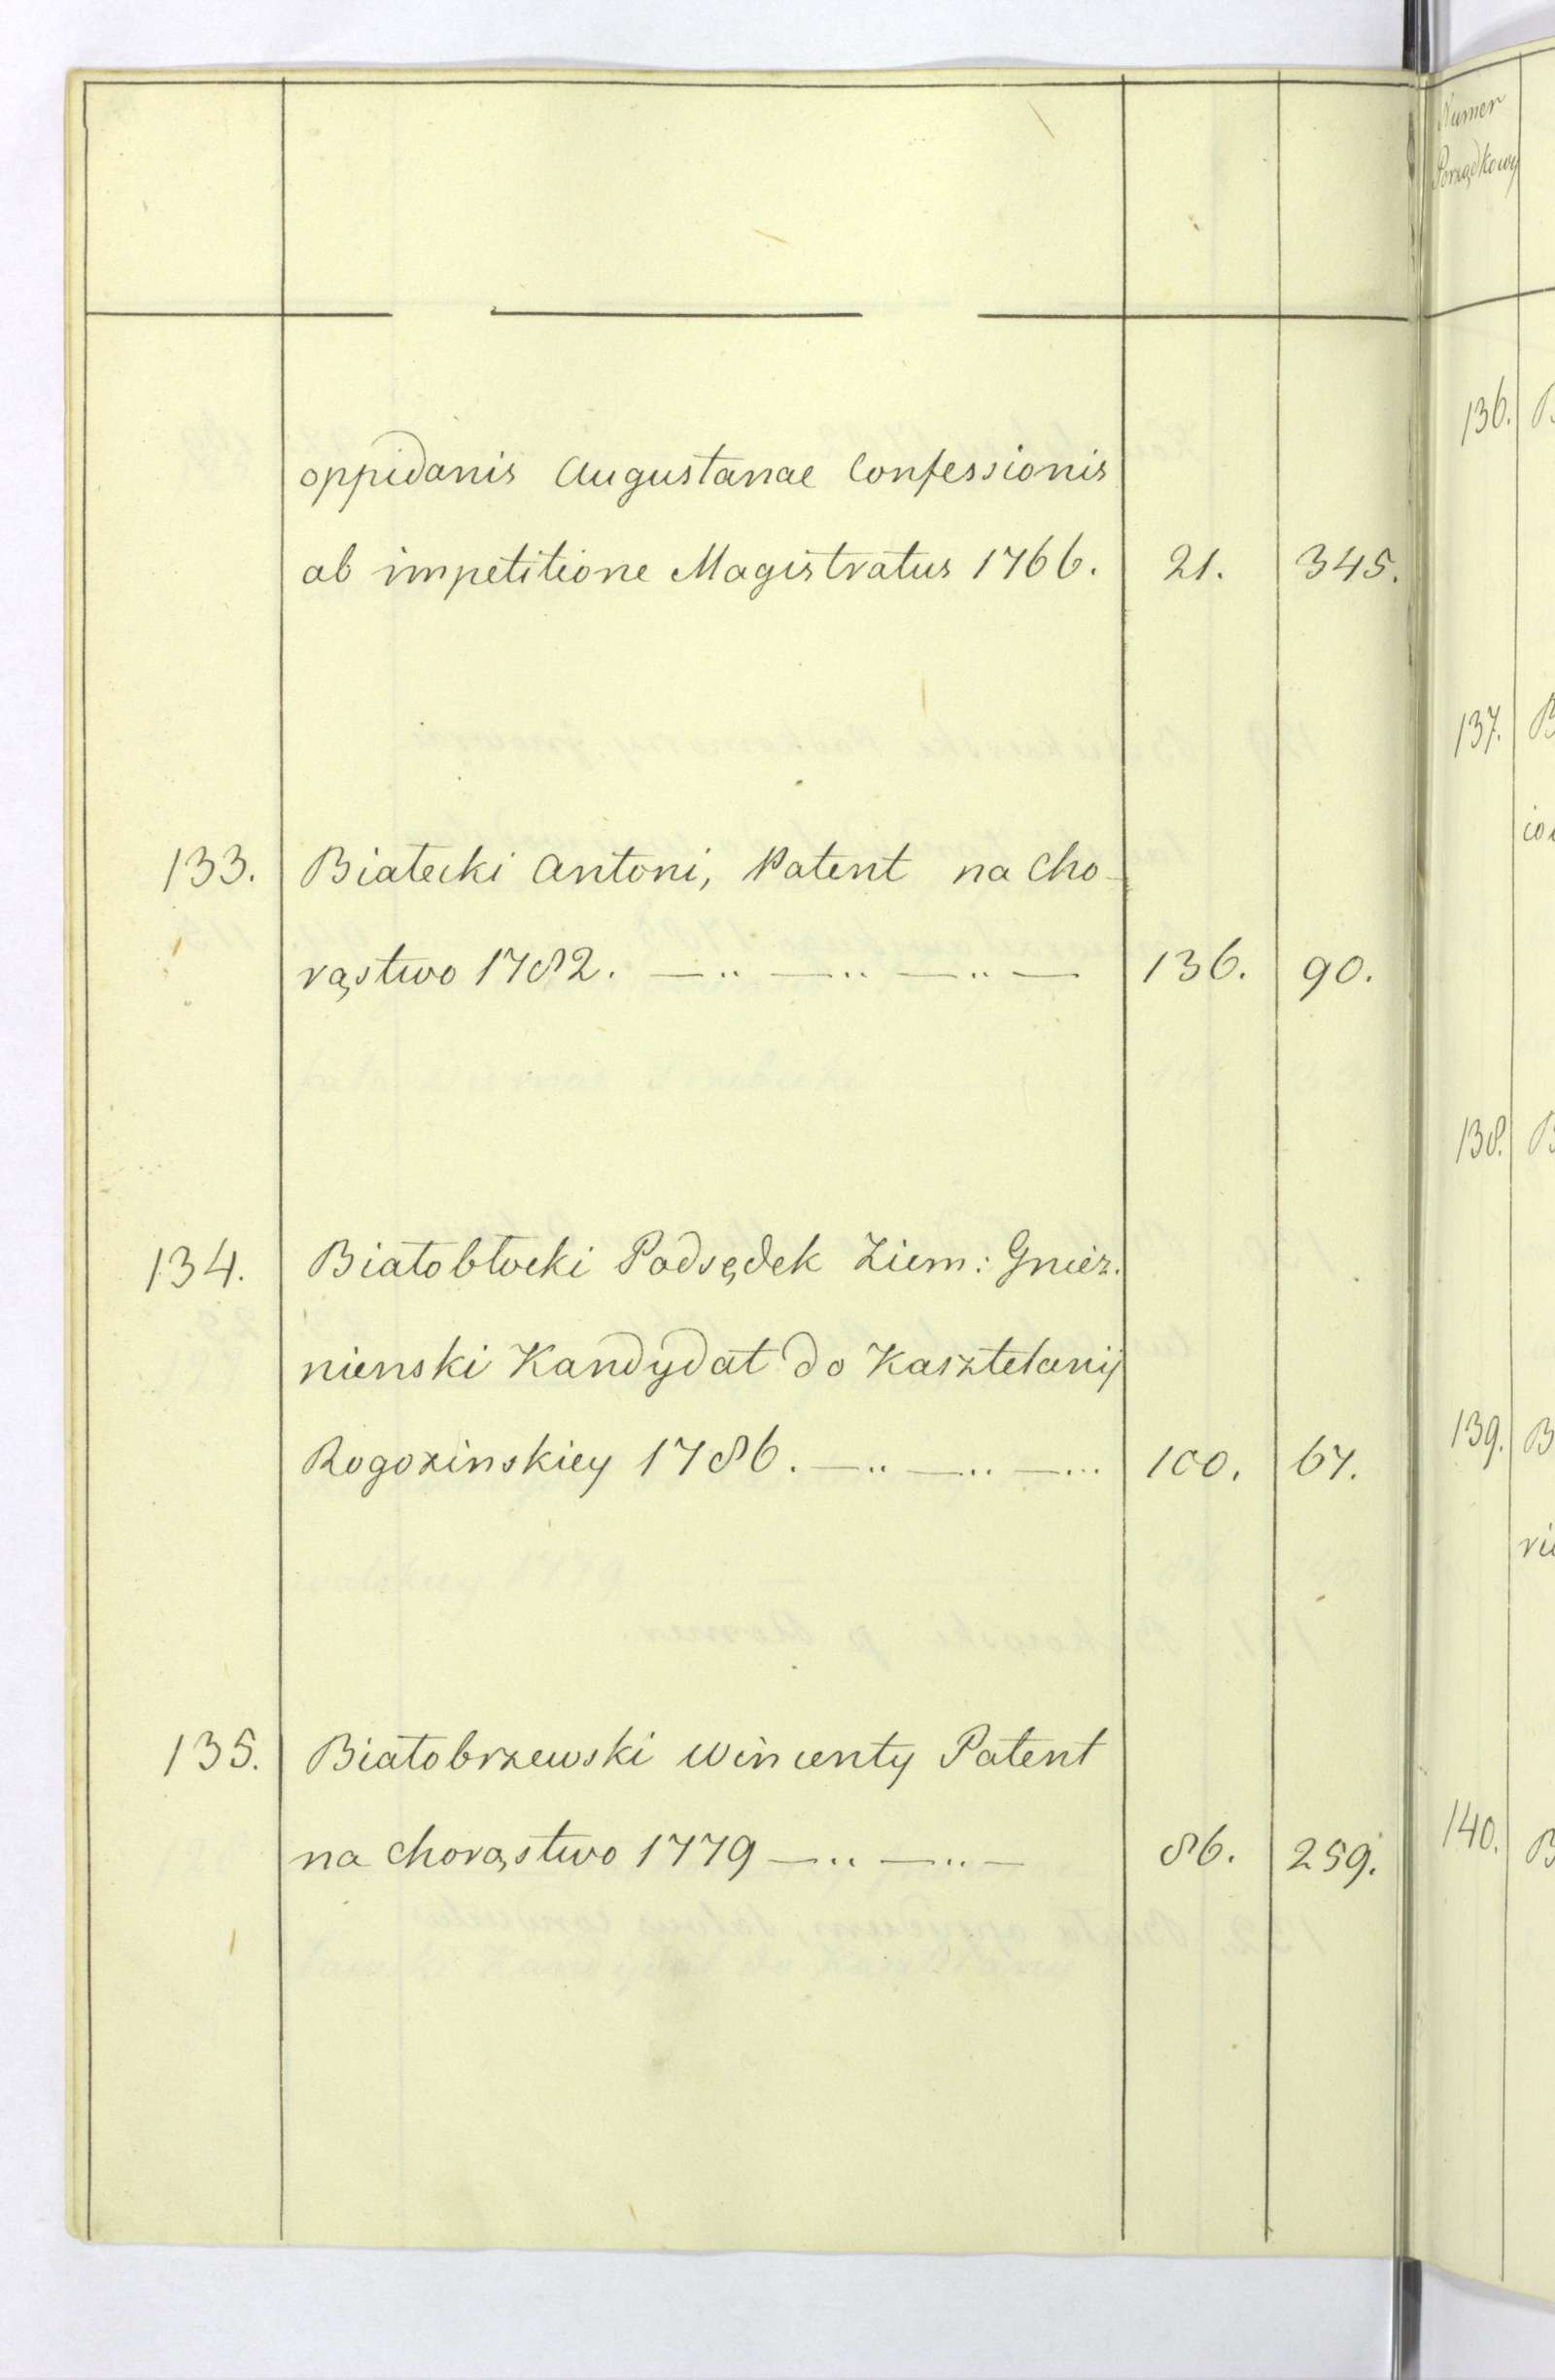 oppidanis Augustanae Confessionis
ab impetitione Magistratus 1766. 21. 345.
133. Białecki Antoni, Patent na Cho-
rąstwo 1782. —.. —.. —.. — 136. 90.
134. Białobłocki Podsędek Ziem: Gniez.
nienski Kandydat do Kasztelanij
Rogozinskiey 1786. —.. —.. —... 100. 67.
135. Białobrzewski Wincenty Patent
na Chorąstwo 1779 —.. —.. — 86. 259.
Numer
Porządkowy
136. B
137. B
138. B
139. B
140. B